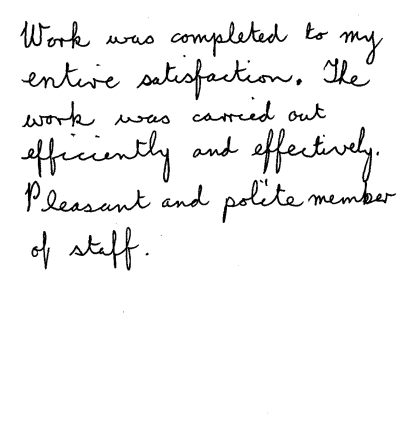 Work was completed to my
entire satisfaction. The
work was carried out
efficiently and effectively.
Pleasant and polite member
of staff.